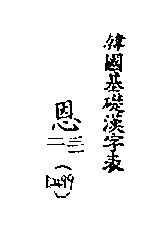 韓國基礎漢字表
恩
二三
(1299)